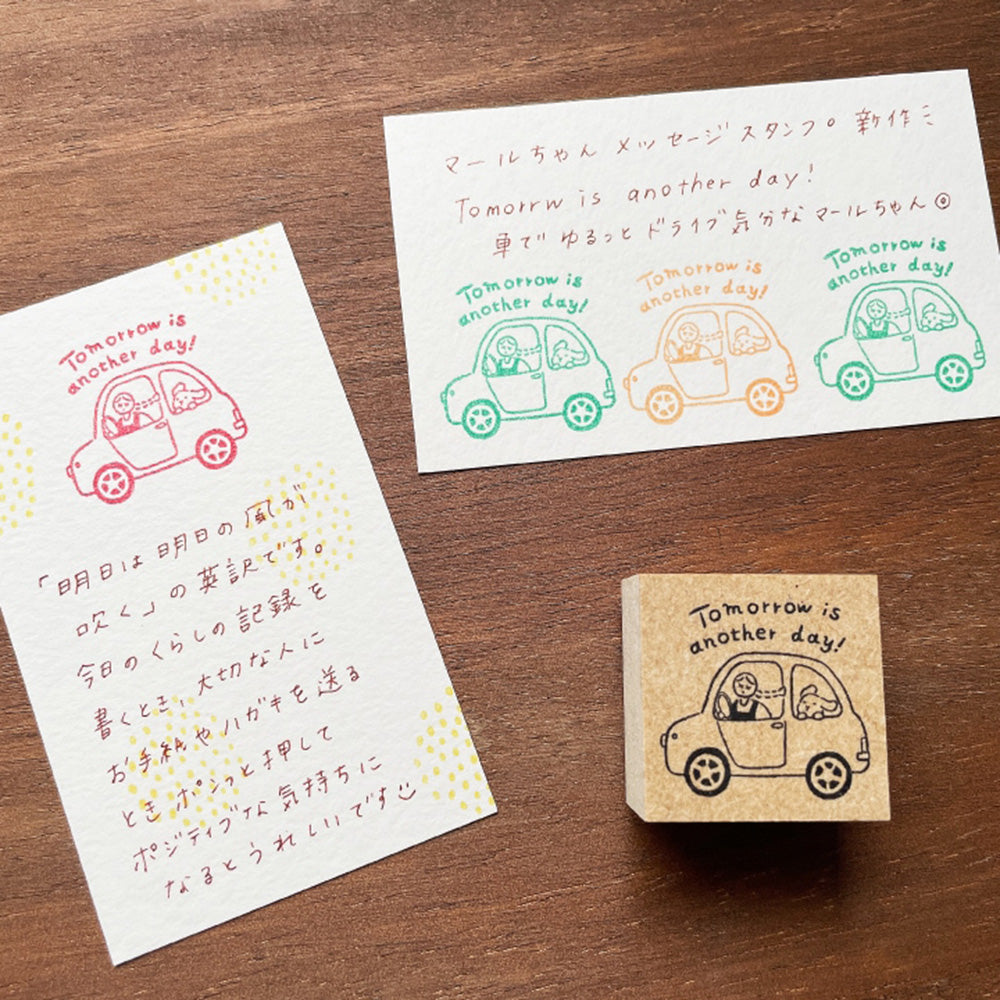 Tomorrow is
another day!
「明日は明日の風が
吹く」の英訳です。
今日のくらしの記録を
書くとき、大切な人に
お手紙やハガキを送る
ときポンっと押して
ポジティブな気持ちに
なるとうれしいです
マールちゃん メッセージスタンプ 新作ミ
Tomorrw is another day!
車でゆるっとドライブ気分なマールちゃん◎
Tomorrow is
another day!
Tomorrow is
another day!
Tomorrow is
another day!
Tomorrow is
another day!